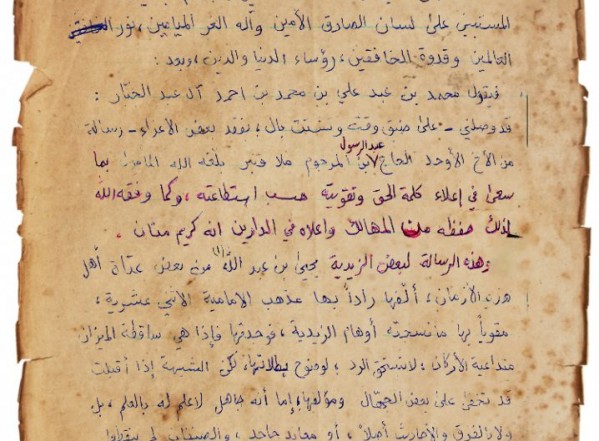 المستبين على لسان الصادق الأمين وآله الغر الميامين، نور
العالمين وقدوة الخافقين، رؤساء الدنيا والدين، وبعد:
فيقول محمد بن عبد علي بن محمد بن احمد آل عبد الجبار:
قد وصلني - على ضيق وقت وتشتت بال، لفقد بعض الاعزاء - رسالة
من الأخ الأوحد الحاج عبد الرسول ابن المرحوم ملا قنبر بلغه الله المأمول بما
سعى في إعلاء كلمة الحق وتقويته حسب استطاعته، وكما وفقه الله
لذلك حفظه من المهالك وأعلاه في الدارين انه كريم منان.
وهذه الرسالة لبعض الزيدية يحيى بن عبد الله (1) من بعض أهل
هذه الأزمان، ألفها راداً بها مذهب الامامية الاثني عشرية،
مقوياً بها ما نسجته أوهام الزيدية، فوجدتها فإذا هي ساقطة الميزان
متداعية الأركان، لا تستحق الرد؛ لوضوح بطلانها، لكن الشبهة إذا أقبلت
قد تخفى على بعض الجهال ومؤلفها إما أنه جاهل لا علم له بالعلم، بل
ولا بالفرق والأحاديث أصلاً، أو معاند جاحد، والصنفان لم